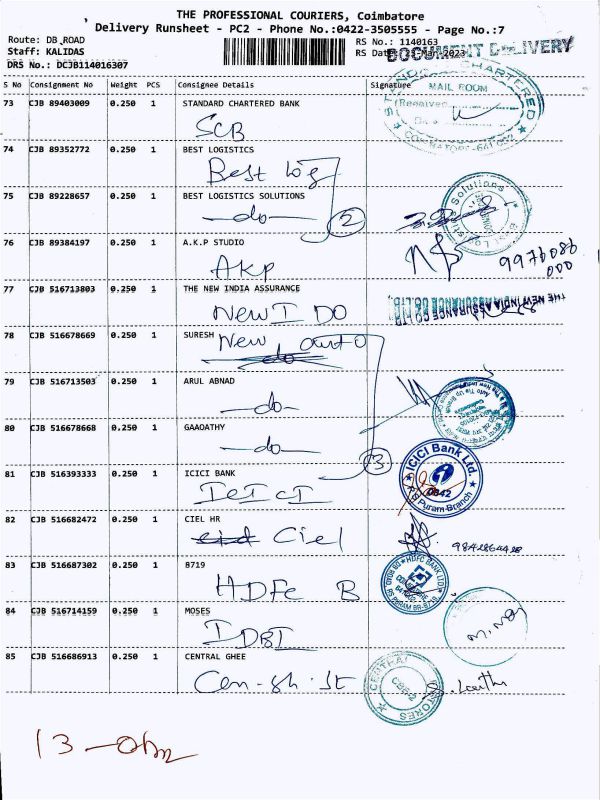 THE PROFESSIONAL COURIERS, Coimbatore
Delivery Runsheet - PC2 - Phone No.:0422-3505555 - Page No.:7
Route: DB_ROAD
Staff: KALIDAS
DRS No.: DCJB114016307
RS No.: 1140163
RS Date: Mar-2023
DOCUMENT DELIVERY
S No Consignment No Weight PCS Consignee Details Signature
73 CJB 89403009 0.250 1 STANDARD CHARTERED BANK
SCB
STANDARD CHARTERED
MAIL ROOM
(Received
COIMBATORE-641 002
74 CJB 89352772 0.250 1 BEST LOGISTICS
Best log
75 CJB 89228657 0.250 1 BEST LOGISTICS SOLUTIONS
-do-
2
76 CJB 89384197 0.250 1 A.K.P STUDIO
AKP
9976086
000
77 CJB 516713803 0.250 1 THE NEW INDIA ASSURANCE
New I DO
THE NEW INDIA ASSURANCE CO.LTD.
78 CJB 516678669 0.250 1 SURESH
New auto
do
79 CJB 516713503 0.250 1 ARUL ABNAD
-do-
80 CJB 516678668 0.250 1 GAAOATHY
-do-
3
81 CJB 516393333 0.250 1 ICICI BANK
ICICI
ICICI Bank Ltd.
0842
RS Puram-Branch
82 CJB 516682472 0.250 1 CIEL HR
Ciel
83 CJB 516687302 0.250 1 8719
HDFC B
HDFC BANK LTD
84 CJB 516714159 0.250 1 MOSES
IDBI
85 CJB 516686913 0.250 1 CENTRAL GHEE
Cen-gh-St
CBE-2
STORES
13